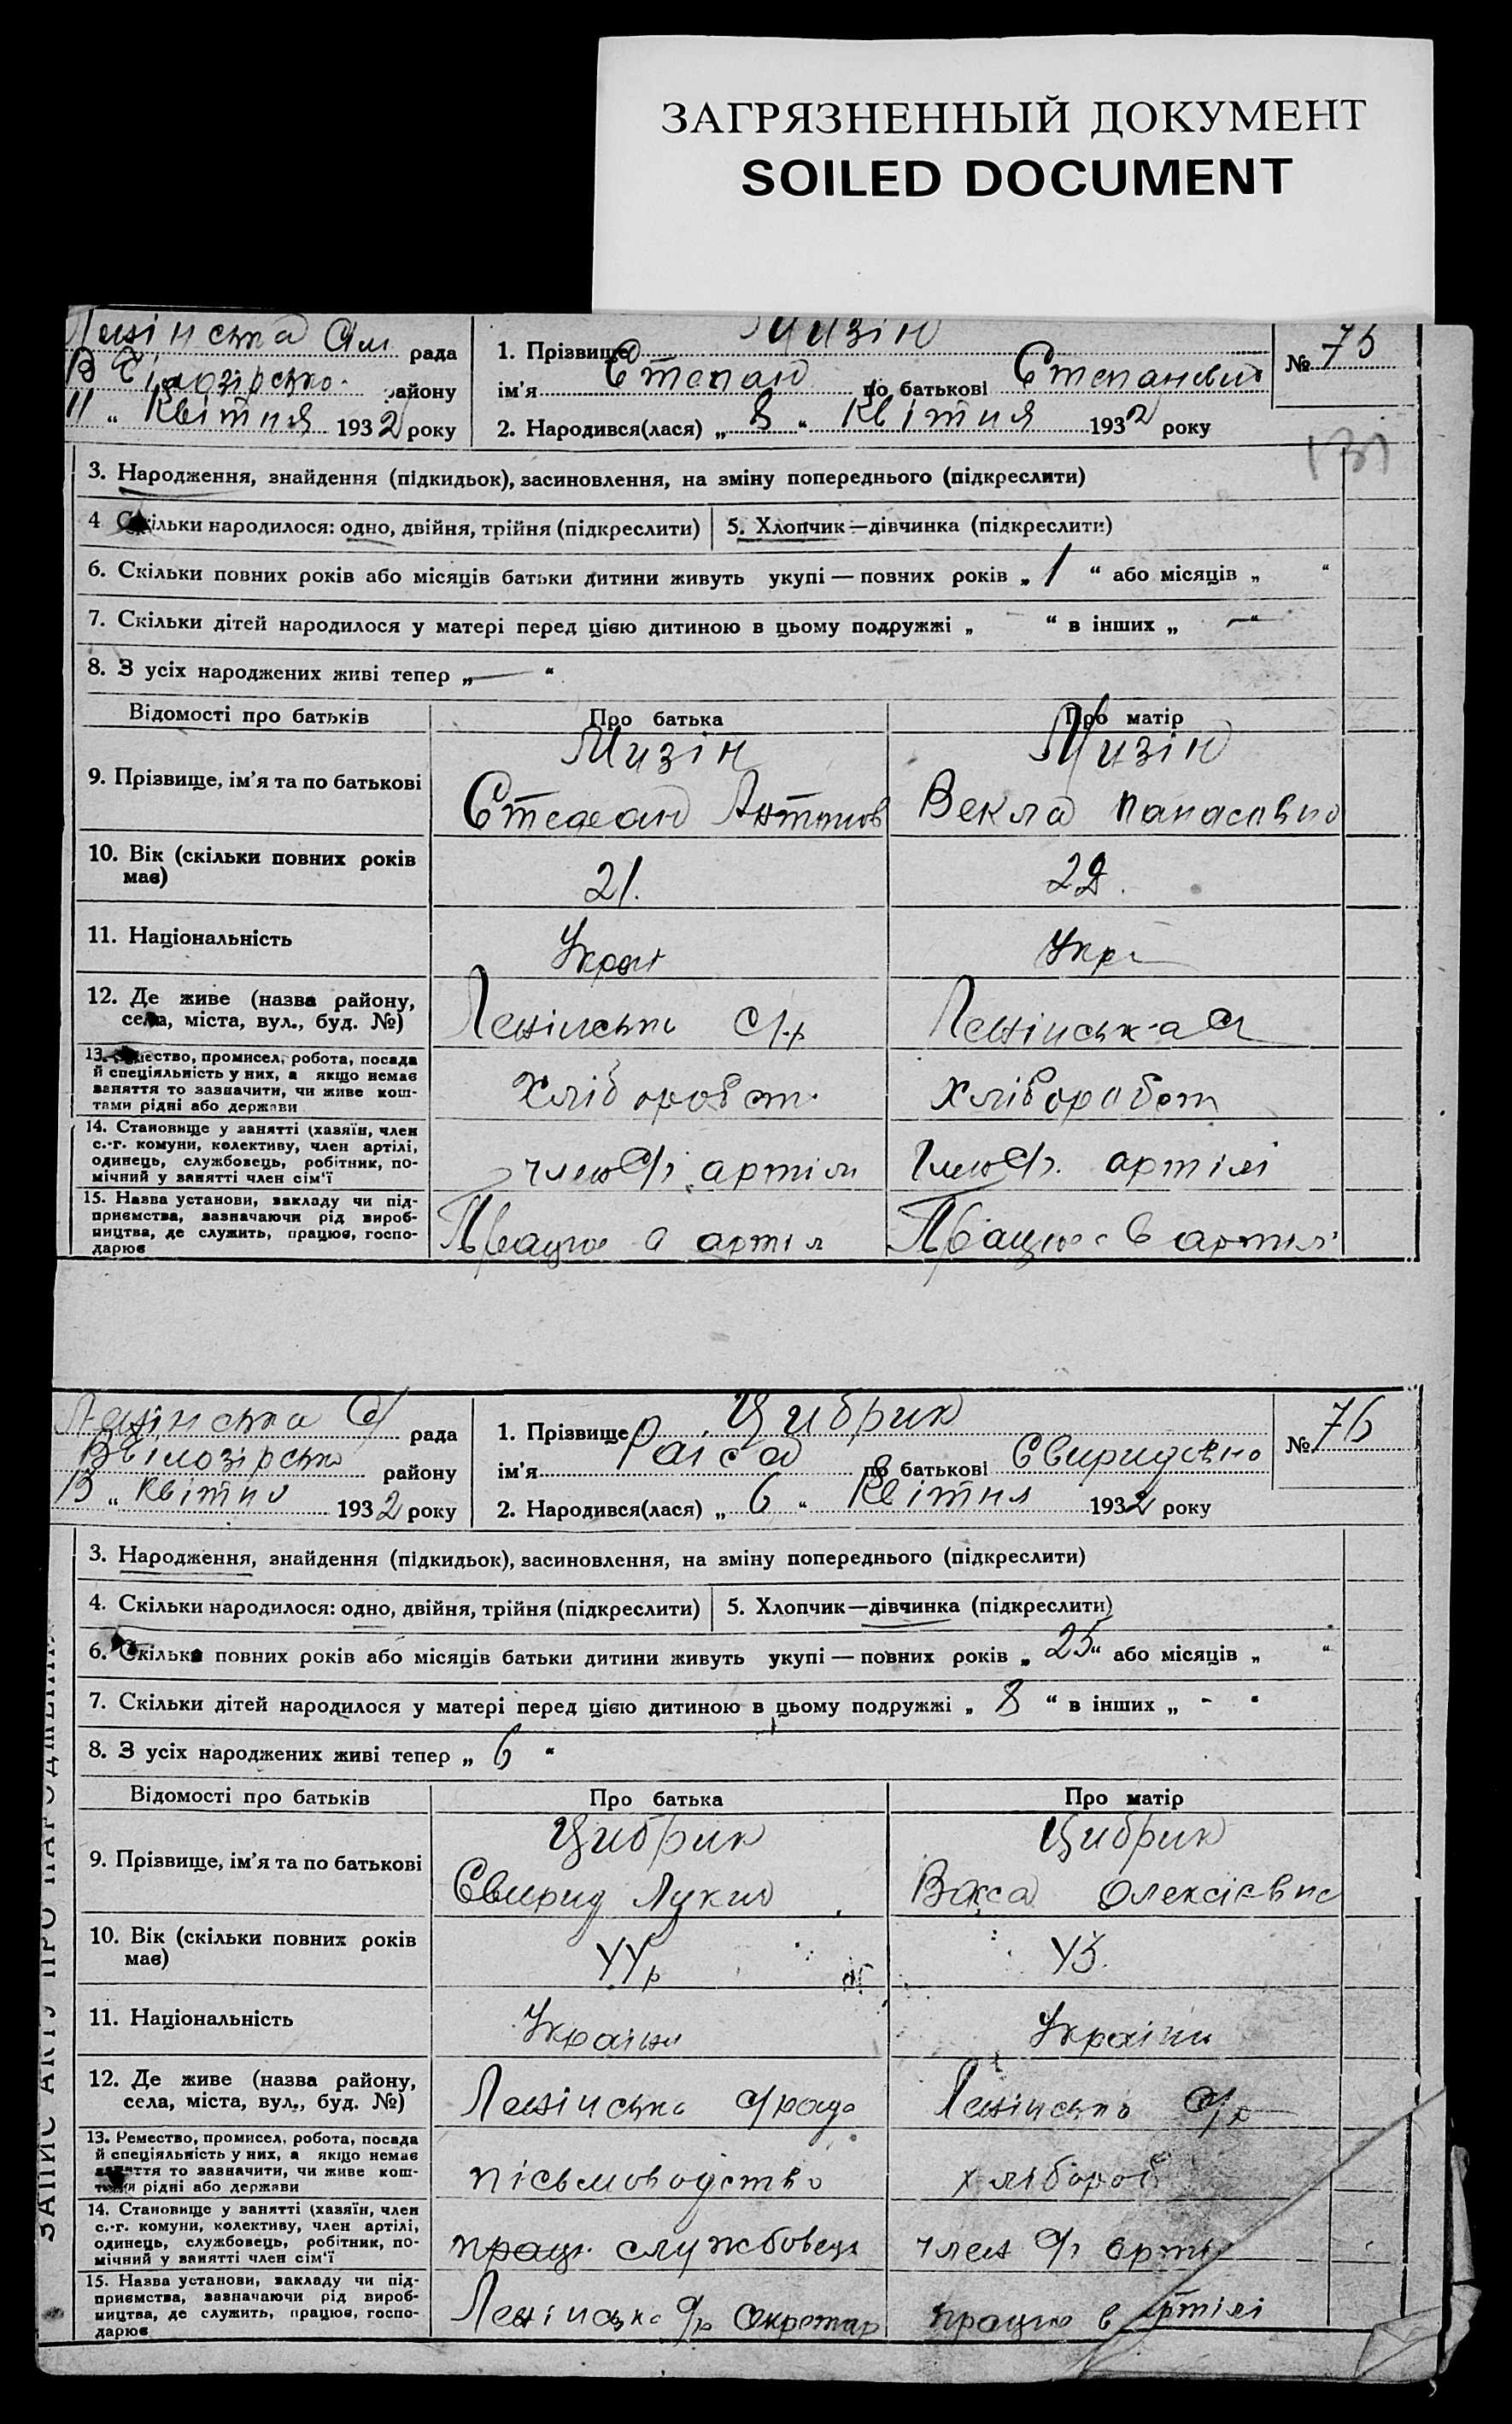 ЗАГРЯЗНЕННЫЙ ДОКУМЕНТ
SOILED DOCUMENT
Ленінська рада
району
11 " Квітня 1932 року
1. Прізвище Мизін
ім'я Степан по батькові Степанович
2. Народився(лася) „ 8 " Квітня 1932 року
№ 75
131
3. Народження, знайдення (підкидьок), засиновлення, на зміну попереднього (підкреслити)
4 Скільки народилося: одно, двійня, трійня (підкреслити) 5. Хлопчик—дівчинка (підкреслити)
6. Скільки повних років або місяців батьки дитини живуть укупі — повних років „ 1 " або місяців „ "
7. Скільки дітей народилося у матері перед цією дитиною в цьому подружжі „ " в інших „ — "
8. З усіх народжених живі тепер „ — "
Відомості про батьків Про батька Про матір
9. Прізвище, ім'я та по батькові
Мизін Мизін
Степан Антонов Векла Панасовна
10. Вік (скільки повних років має) 21. 22.
11. Національність Украї Укрї
12. Де живе (назва району, села, міста, вул., буд. №)
Ленінська с/р Ленінська с/
13. Ремество, промисел, робота, посада й спеціяльність у них, а якщо немає заняття то зазначити, чи живе коштами рідні або держави
хлібороб хлібороб
14. Становище у занятті (хазяїн, член с.-г. комуни, колективу, член артілі, одинець, службовець, робітник, помічний у занятті член сім'ї
член с/г артіли член с/г. артілі
15. Назва установи, закладу чи підприємства, зазначаючи рід виробництва, де служить, працює, господарює
Працює в артіл Працює в артіл
Ленінська с/ рада
Вбілозірська району
13 " Квітня 1932 року
1. Прізвище Цибрик
ім'я Раіса по батькові Свиридовна
2. Народився(лася) „ 6 " Квітня 1932 року
№ 76
3. Народження, знайдення (підкидьок), засиновлення, на зміну попереднього (підкреслити)
4. Скільки народилося: одно, двійня, трійня (підкреслити) 5. Хлопчик—дівчинка (підкреслити)
6. Скільки повних років або місяців батьки дитини живуть укупі — повних років „ 25 " або місяців „ "
7. Скільки дітей народилося у матері перед цією дитиною в цьому подружжі „ 8 " в інших „ - "
8. З усіх народжених живі тепер „ 6 "
Відомості про батьків Про батька Про матір
9. Прізвище, ім'я та по батькові
Цибрик Цибрик
Свирид Лукич Олексієвна
10. Вік (скільки повних років має) 44р 43.
11. Національність Україн Україн
12. Де живе (назва району, села, міста, вул., буд. №)
Ленінська с/рада Ленінська с/р
13. Ремество, промисел, робота, посада й спеціяльність у них, а якщо немає заняття то зазначити, чи живе коштами рідні або держави
пісьмоводство хлібороб
14. Становище у занятті (хазяїн, член с.-г. комуни, колективу, член артілі, одинець, службовець, робітник, помічний у занятті член сім'ї
прац. службовець член с/г арті
15. Назва установи, закладу чи підприємства, зазначаючи рід виробництва, де служить, працює, господарює
Ленінська с/р Секретар працює в артілі
ЗАПИС АКТУ ПРО НАРОДЖЕННЯ